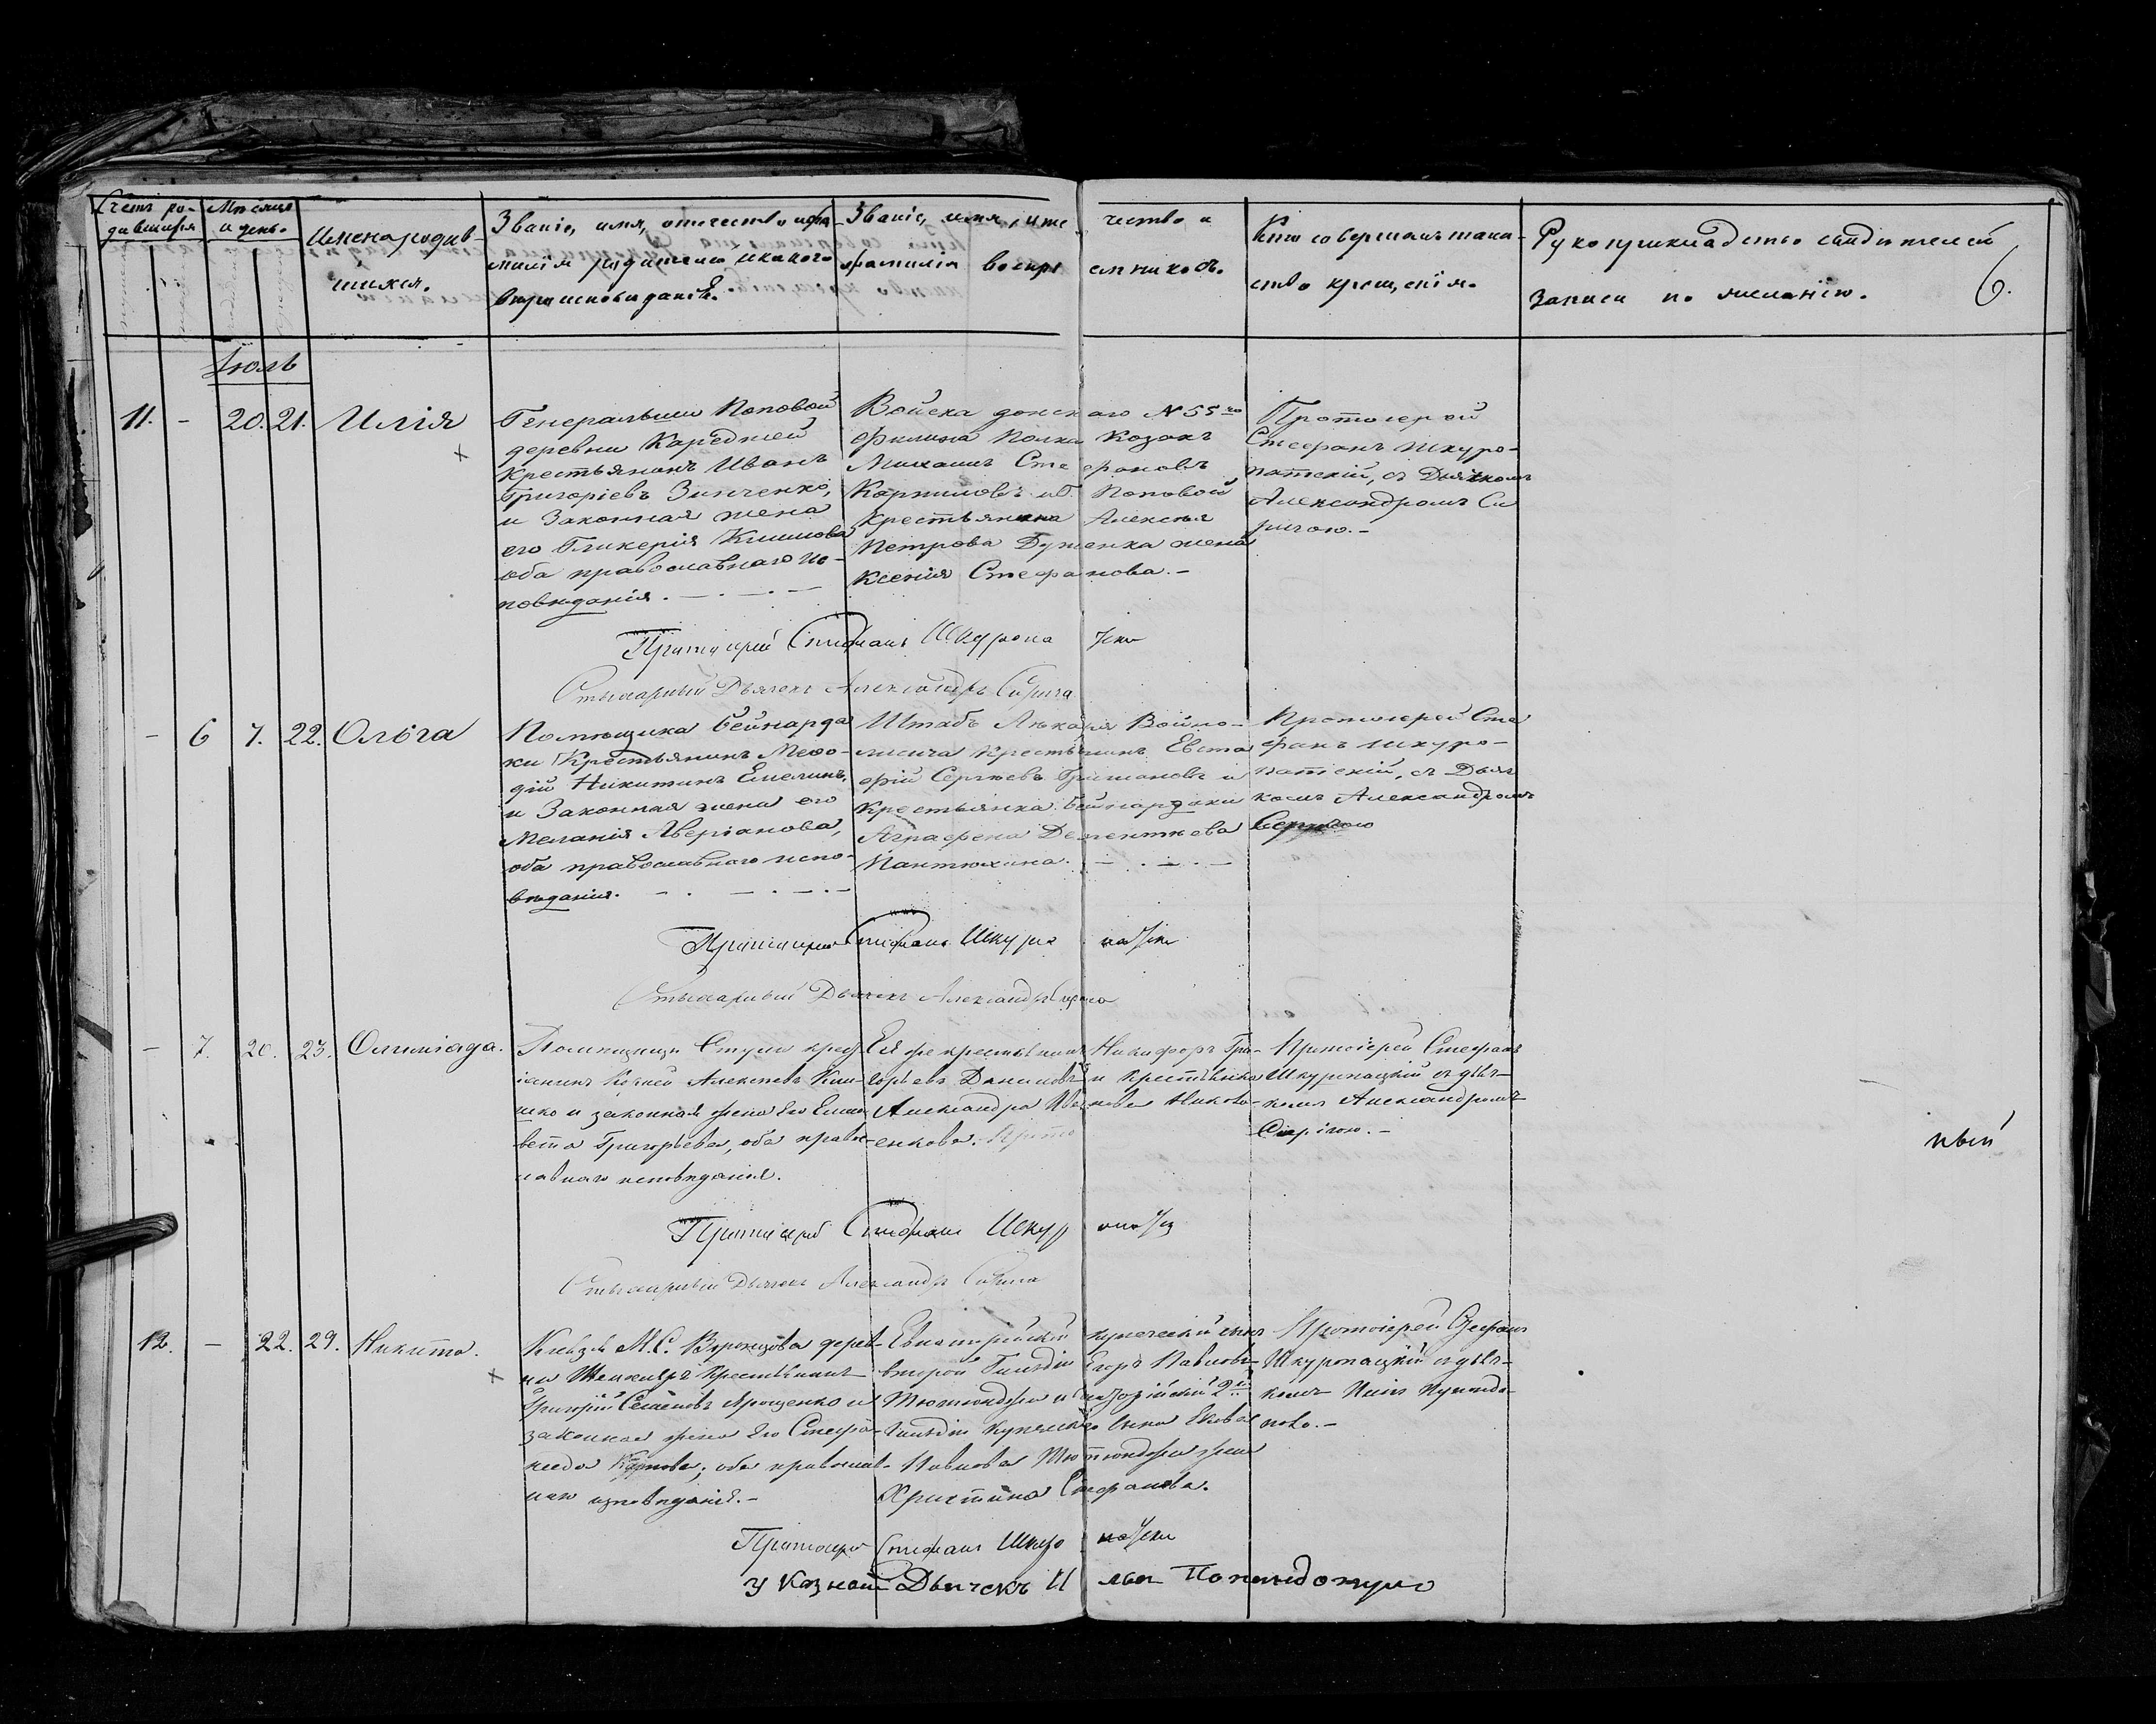 Счетъ ро-
дившихся
Мѣсяцъ
и день.
Имена родив-
шихся.
Званіе, имя, отчество и фа-
милія родителей и какого
вѣроисповѣданія.
Званіе, имя, отчество и
фамилія воспріемниковъ.
Кто совершалъ таин-
ство крещенія.
Рукоприкладство свидѣтелей
записи по желанію.
6.
Іюль
11. - 20. 21. Илія
Генеральши Поповой
деревни Караджей
крестьянинъ Иванъ
Григоріевъ Зинченко,
и законная жена
его Гликерія Климова
оба православнаго ис-
повѣданія.
Войска донскаго N 55го
Филина Полка Козакъ
Михаилъ Стефановъ
Корниловъ и Г. Поповой
крестьянина Алексѣя
Петрова Душенка жена
Ксенія Стефанова.-
Протоіерей
Стефанъ Шкуро-
патскій, съ Дьячкомъ
Александромъ Си
ричою.-
Протоіерей Стефанъ Шкуропатски
Стихарный Дьячекъ Александръ Сирича
- 6 7. 22. Ольга
Помѣщика Бейнарда
ки Крестьянинъ Мефо-
дій Никитинъ Емелинъ,
и Законная жена его
Меланія Аверіанова,
оба православнаго испо-
вѣданія.
Штабъ Лѣкаря Войно-
лича крестьянинъ Евста
фій Сергѣевъ Гришановъ и
крестьянка Бейнардаки
Аграфена Дементьева
Пантюхина.
Протоіерей Сте
фанъ Шкуро-
патскій, съ Дьяч
комъ Александромъ
Протоіерей Стефанъ Шкуропатски
Стихарный Дьячекъ Александръ Сирича
- 7. 20. 23. Олимпіада.
Помѣщицы крест
іанинъ Алексѣевъ Кли-
шко и законная жена его Елиса
вета Григорьева, оба право-
славнаго исповѣданія.
Ея же крестьянинъ Никифоръ Гри-
горьевъ Даниловъ и крестьянка
Александра Иванова Никово-
енкова.
Протоіерей Стефанъ
Шкуропацкій съ дьяч-
комъ Александромъ
Сиричою.-
ный
Протоіерей Стефанъ Шкуропатски
Стихарный Дьячекъ Александръ Сирича
12. - 22. 29. Никита.
Князя М.С. Воронцова дерев-
ни крестьянинъ
Григорій Семеновъ Ярощенко и
законная жена его Стефа-
нида Карпова; оба православ-
наго исповѣданія.-
Евпаторійскій купеческій сынъ
второй Гильдіи Егоръ Павловъ
Тютюнджи и 2й
Гильдіи купеческаго сына Якова
Павлова Тютюнджи жена
Христина Стефанова.
Протоіерей Стефанъ
Шкуропацкій съ дьяч-
комъ
Протоіерей Стефанъ Шкуропатски
Указной Дьячекъ Илья Попандопуло